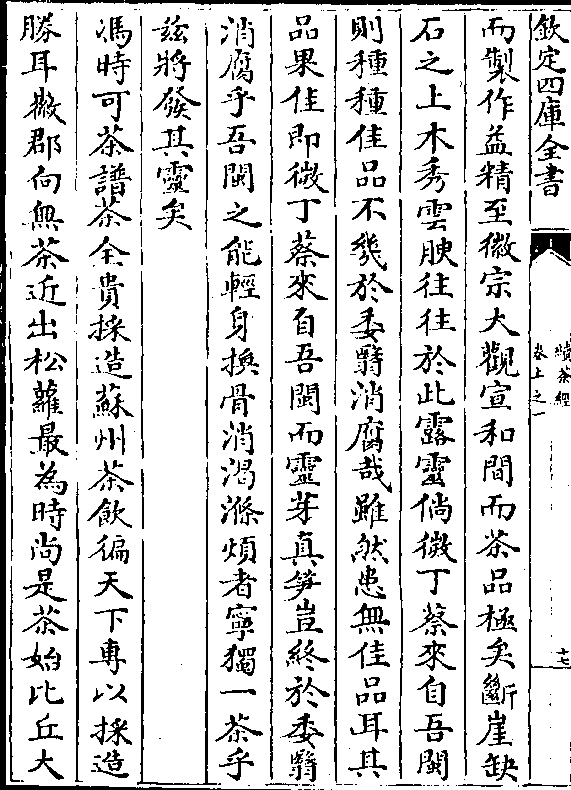 欽定四庫全書
續茶經
卷上之一
十七
而製作益精至徽宗大觀宣和間而茶品極矣斷崖缺
石之上木秀雲腴往往於此露靈倘微丁蔡來自吾閩
則種種佳品不幾於委翳消腐哉雖然患無佳品耳其
品果佳即微丁蔡來自吾閩而靈芽真笋豈終於委翳
消腐乎吾閩之能輕身換骨消渴滌煩者寧獨一茶乎
兹將發其靈矣
馮時可茶譜茶全貴採造蘇州茶飲徧天下專以採造
勝耳徽郡向無茶近出松蘿最為時尚是茶始比丘大